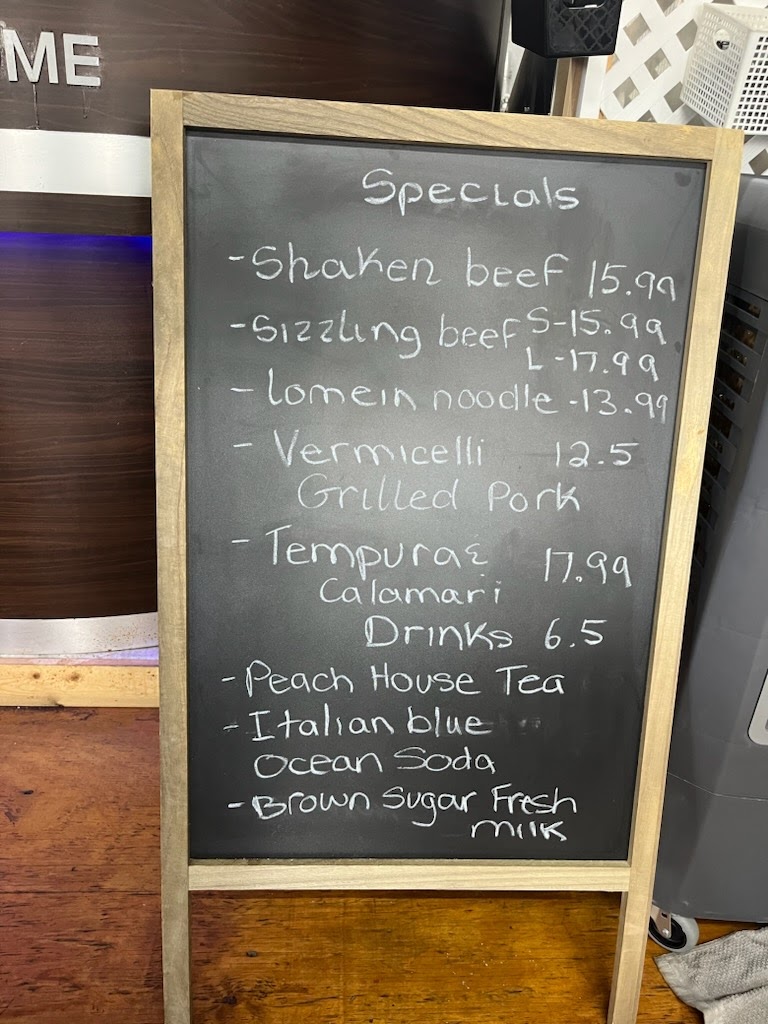 ME
Specials
- Shaken beef 15.99
- Sizzling beef S-15.99
L-17.99
- Lomein noodle -13.99
- Vermicelli 12.5
Grilled Pork
- Tempura & 17.99
Calamari
Drinks 6.5
- Peach House Tea
- Italian blue
Ocean Soda
- Brown Sugar Fresh
milk